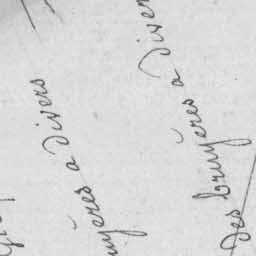 uyères a Divers
Des bruyères a Diver